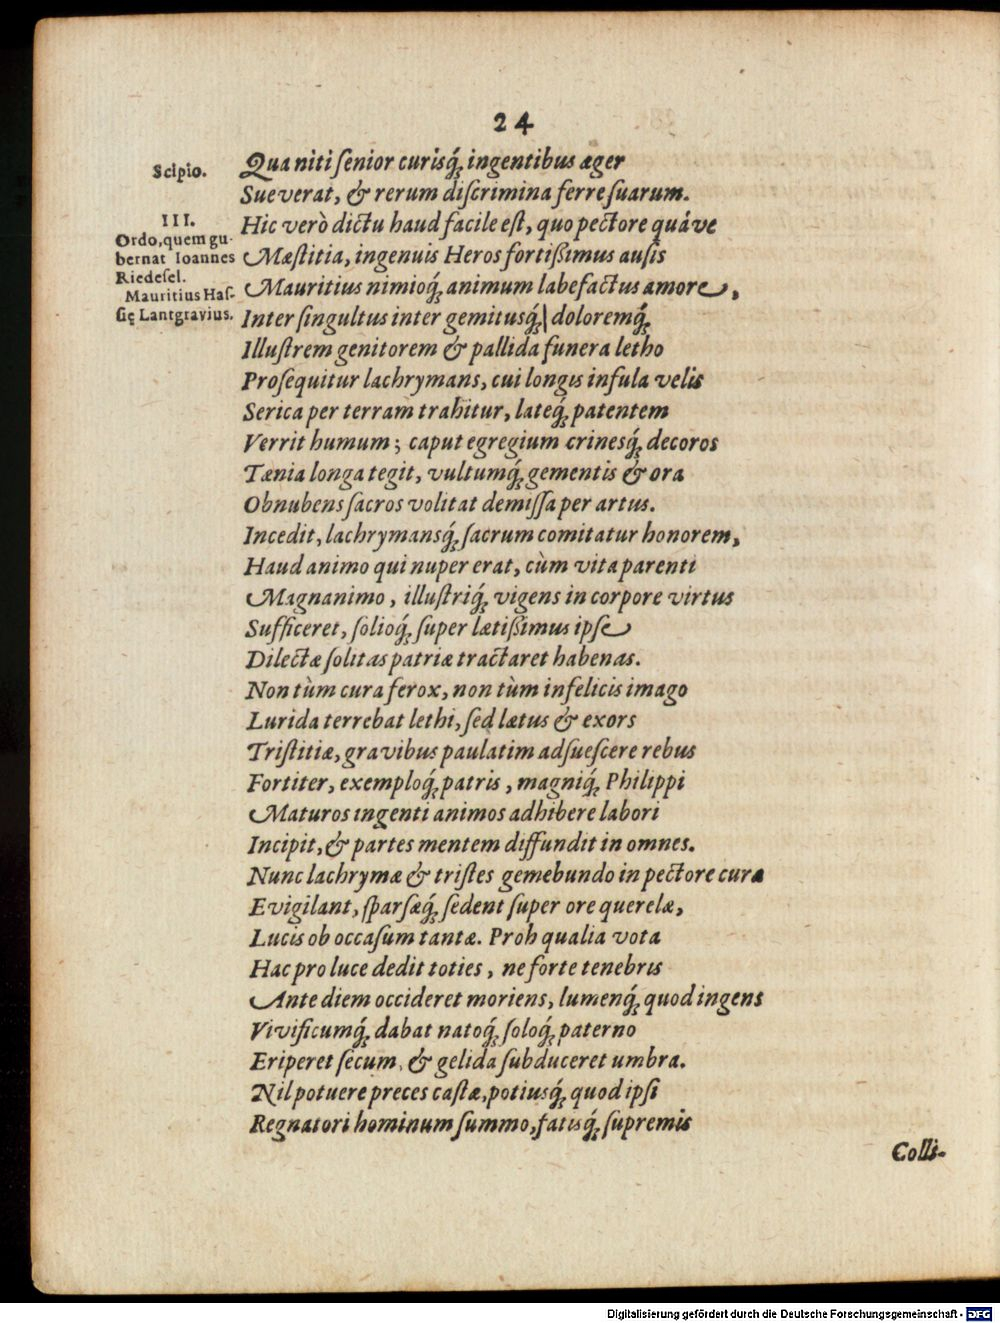 24
Scipio.
Qua niti ſenior curisq́; ingentibus æger
Sueverat, & rerum diſcrimina ferre ſuarum.
III.
Ordo, quem gu-
bernat Ioannes
Riedeſel.
Mauritius Haſ-
ſię Lantgravius.
Hic verò dictu haud facile eſt, quo pectore quáve
Mæſtitia, ingenuis Heros fortiſſimus auſis
Mauritius nimioq́; animum labefactus amore,
Inter ſingultus inter gemitusq́; doloremq́;
Illuſtrem genitorem & pallida funera letho
Proſequitur lachrymans, cui longis infula velis
Serica per terram trahitur, lateq́; patentem
Verrit humum; caput egregium crinesq́; decoros
Tænia longa tegit, vultumq́; gementis & ora
Obnubens ſacros volitat demiſſa per artus.
Incedit, lachrymansq́; ſacrum comitatur honorem,
Haud animo qui nuper erat, cùm vita parenti
Magnanimo, illuſtriq́; vigens in corpore virtus
Sufficeret, ſolioq́; ſuper lætiſſimus ipſe
Dilectæ ſolitas patriæ tractaret habenas.
Non tùm cura ferox, non tùm infelicis imago
Lurida terrebat lethi, ſed lætus & exors
Triſtitiæ, gravibus paulatim adſueſcere rebus
Fortiter, exemploq́; patris, magniq́; Philippi
Maturos ingenti animos adhibere labori
Incipit, & partes mentem diffundit in omnes.
Nunc lachrymæ & triſtes gemebundo in pectore curæ
Evigilant, ſparſæq́; ſedent ſuper ore querelæ,
Lucis ob occaſum tantæ. Proh qualia vota
Hac pro luce dedit toties, ne forte tenebris
Ante diem occideret moriens, lumenq́; quod ingens
Vivificumq́; dabat natoq́; ſoloq́; paterno
Eriperet ſecum, & gelida ſubduceret umbra.
Nil potuere preces caſtæ, potiusq́; quod ipſi
Regnatori hominum ſummo, fatisq́; ſupremis
Colli-
Digitalisierung gefördert durch die Deutsche Forschungsgemeinschaft - DFG